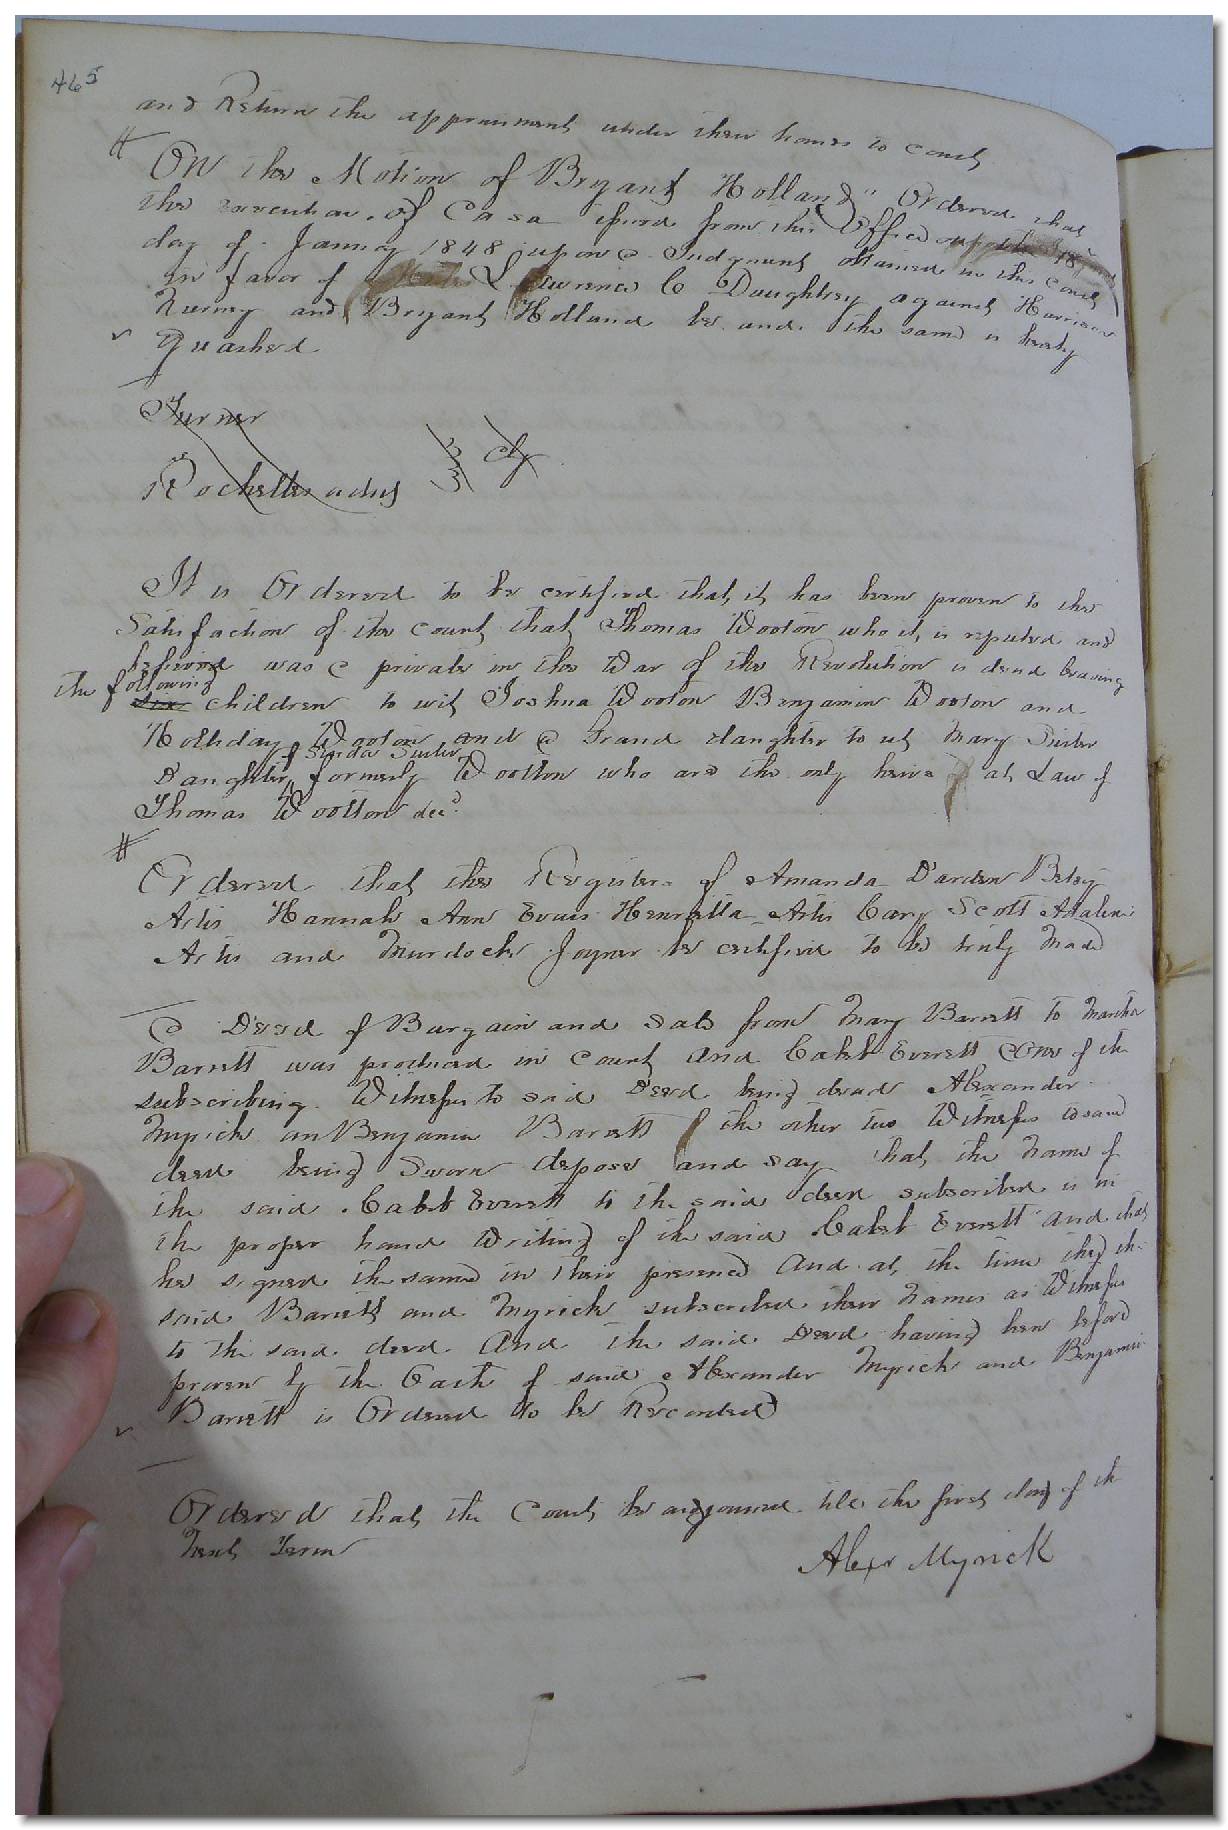 465
and Return the appraisment under their hands to court
#
On the Motion of Bryant Holland" Ordered that
the execution of Casa issued from this Office on the 18
day of January 1848 upon a Judgment obtained in this Court
in favor of Lawrence & Daughtrey against Harrison
and Bryant Holland be and the same is hereby
quashed
Turner
vs
Rochelles adms
It is Ordered to be certified that it has been proven to the
Satisfaction of the court that Thomas Wooton who it is reputed and
believed was a private in the War of the Revolution is dead leaving
the following
children to wit Joshua Wooton Benjamin Wooton and
Holliday Wooton and a Grand daughter to wit Mary Suiter
of Suiter
Daughter formerly Wootton who are the only heirs at Law of
Thomas Wootton decd
#
Ordered that the Registers of Amanda Darden Betsy
Artis Hannah Ann Evans Henrietta Artis Cary Scott Adaline
Artis and Murdock Joyner be certified to be truly Made
A Deed of Bargain and Sale from Mary Barrett to Martha
Barrett was produced in Court and Caleb Everett One of the
subscribing Witnesses to said Deed being dead Alexander
Myrick an Benjamin Barrett the other two Witnesses to said
deed being Sworn depose and say that the Name of
the said Caleb Everett to the said deed subscribed is in
the proper hand Writing of the said Caleb Everett and that
he signed the same in their presence And at the time they the
said Barrett and Myrick subscribed their Names as Witnesses
to the said deed And the said Deed having been before
proven by the Oath of said Alexander Myrick and Benjamin
Barrett is Ordered to be Recorded
Ordered that the Court be adjourned till the first day of the
Next Term
Alexr Myrick